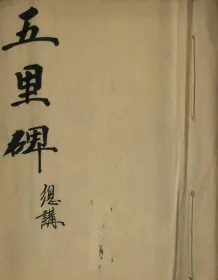 五里碑
總講